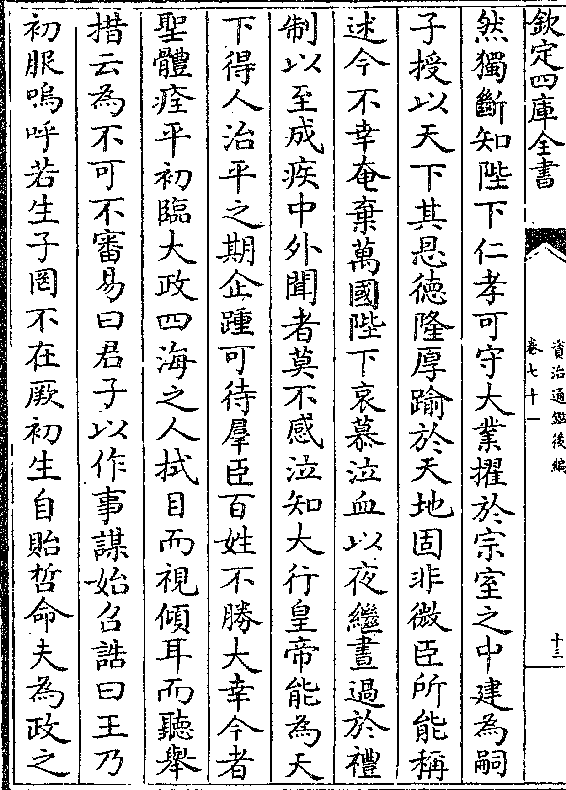 欽定四庫全書
資治通鑑後編
卷七十一
十三
然獨斷知陛下仁孝可守大業擢於宗室之中建為嗣
子授以天下其恩德隆厚踰於天地固非微臣所能稱
述今不幸奄棄萬國陛下哀慕泣血以夜繼晝過於禮
制以至成疾中外聞者莫不感泣知大行皇帝能為天
下得人治平之期企踵可待羣臣百姓不勝大幸今者
聖體痊平初臨大政四海之人拭目而視傾耳而聽舉
措云為不可不審易曰君子以作事謀始召誥曰王乃
初服嗚呼若生子罔不在厥初生自貽哲命夫為政之